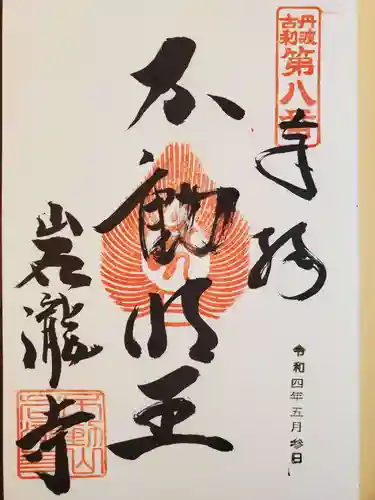 丹波
古刹
第八番
奉拝
不動明王
岩瀧寺
令和四年五月参日